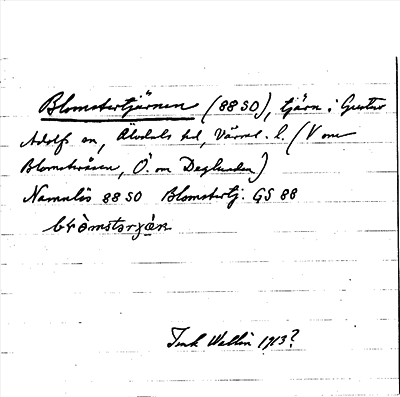 Blomstertjärnen (88 SO), tjärn i Gustav
Adolfs sn, Älvdals hd, Värml. l. (V om
Blomsteråsen, Ö. om Deglunden)
Namnlös 88 SO Blomstertj. GS 88
Tink Wallin 1913?